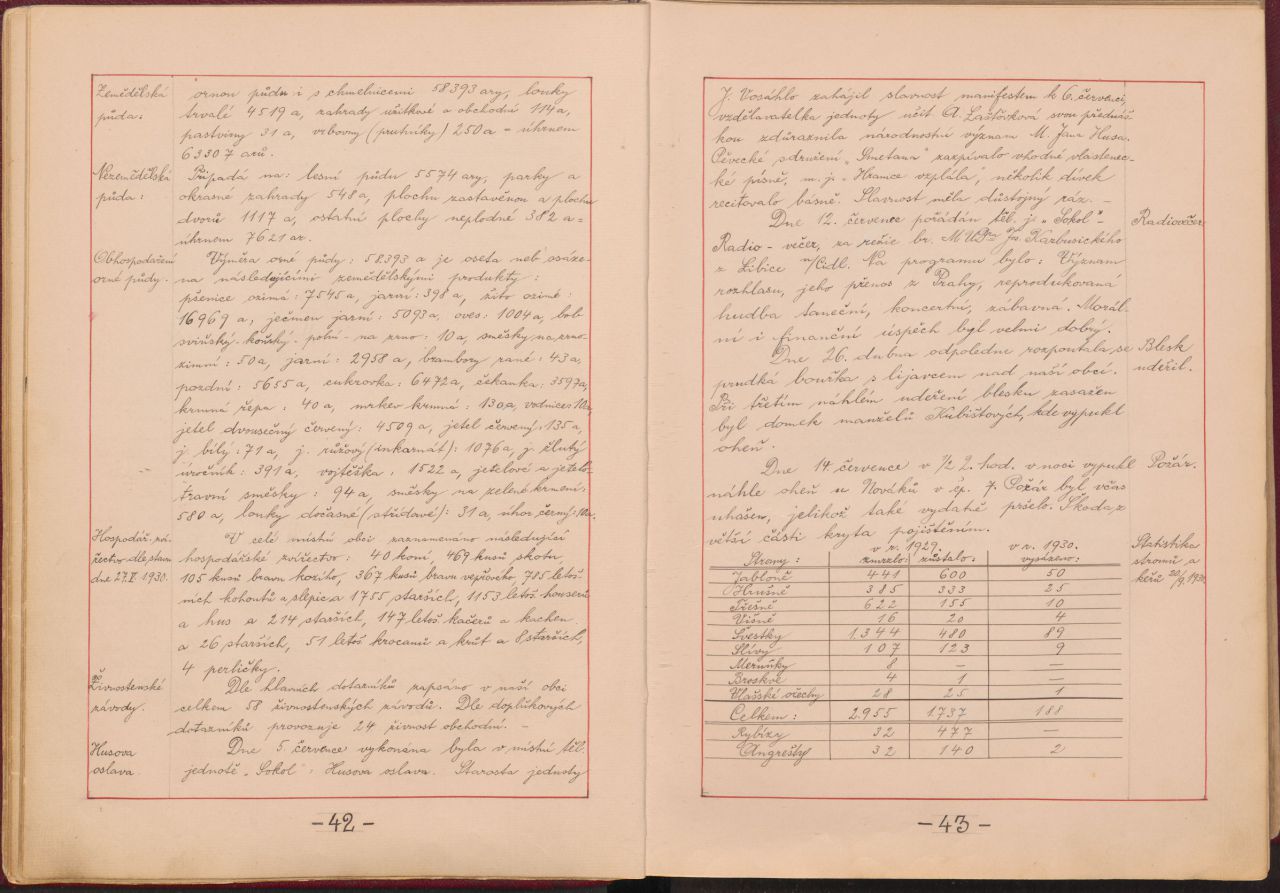 Zemědělská
půda:
ornou půdu i s chmelnicemi 58393 ary, louky
trvalé 4519 a, zahrady užitkové a obchodní 114 a,
pastviny 31 a, vrbovny (prutníky) 250 a = úhrnem
63307 arů.
Nezemědělská
půda:
Připadá na: lesní půdu 5574 ary, parky a
okrasné zahrady 548 a, plochu zastavěnou a plochu
dvorů 1117 a, ostatní plochy neplodné 382 a =
úhrnem 7621 ar.
Obhospodaření
orné půdy.
Výměra orné půdy: 58393 a je oseta neb osáze-
na následujícími zemědělskými produkty:
pšenice ozimá: 7545 a, jarní: 398 a, žito ozimé:
16969 a, ječmen jarní: 5093 a, oves: 1004 a, bob
sviňský-koňský-polní-na zrno: 10 a, směsky na zrno-
zimní: 50 a, jarní: 2958 a, brambory rané: 43 a,
pozdní: 5655 a, cukrovka: 6472 a, čekanka: 3597 a,
krmná řepa: 40 a, mrkev krmná: 130 a, vodnice: 10 a,
jetel dvousečný červený: 4509 a, jetel červený: 135 a,
j. bílý: 71 a, j. růžový (inkarnát): 1076 a, j. žlutý
úročník: 391 a, vojtěška: 1522 a, jetelové a jetelo-
travní směsky: 94 a, směsky na zelené krmení:
580 a, louky dočasné (střídavé): 31 a, úhor černý: 10 a.
Hospodář. zví-
řectvo dle stavu
dne 27.V. 1930.
V celé místní obci zaznamenáno následující
hospodářské zvířectvo: 40 koní, 469 kusů skotu,
105 kusů bravu kozího, 367 kusů bravu vepřového, 785 letoš-
ních kohoutů a slepic a 1755 starších, 1153 letoš. houserů
a hus a 214 starších, 147 letoš. kačerů a kachen
a 26 starších, 51 letoš. krocanů a krůt a 8 starších,
4 perličky.
Živnostenské
závody.
Dle hlavních dotazníků zapsáno v naší obci
celkem 58 živnostenských závodů. Dle doplňkových
dotazníků provozuje 24 živnost obchodní. –
Husova
oslava.
Dne 5. července vykonána byla v místní těl.
jednotě „Sokol": Husova oslava. Starosta jednoty
-42-
J. Vosáhlo zahájil slavnost manifestem k 6. červenci,
vzdělavatelka jednoty učit. A. Laštovková svou přednáš-
kou zdůraznila národnostní význam M. Jana Husa.
Pěvecké sdružení „Smetana" zazpívalo vhodné vlastenec-
ké písně, m. j. „Hranice vzplála", několik dívek
recitovalo básně. Slavnost měla důstojný ráz. –
Radiovečer
Dne 12. července pořádán těl. j. „Sokol" -
Radio - večer, za režie br. MUDra Jos. Karbusického
z Libice n/Cidl. Na programu bylo: Význam
rozhlasu, jeho přenos z Prahy, reprodukovaná
hudba taneční, koncertní, zábavná. Morál-
ní i finanční úspěch byl velmi dobrý.
Blesk
udeřil.
Dne 26. dubna odpoledne rozpoutala se
prudká bouřka s lijavcem nad naší obcí.
Při třetím náhlém udeření blesku zasažen
byl domek manželů Kubištových, kde vypukl
oheň.
Požár.
Dne 14. července v 1/2 2. hod. v noci vypukl
náhle oheň u Nováků v čp. 7. Požár byl včas
uhašen, jelikož také vydatně pršelo. Škoda z
větší části kryta pojištěním.
Statistika
stromů a
keřů 20/9. 1930
v r. 1929. v r. 1930.
Stromy: zmrzlo: zůstalo: vysázeno:
Jabloně 441 600 50
Hrušně 385 333 25
Třešně 622 155 10
Višně 16 20 4
Švestky 1.344 480 89
Slívy 107 123 9
Meruňky 8 — —
Broskve 4 1 —
Vlašské ořechy 28 25 1
Celkem: 2.955 1.737 188
Rybízy 32 477 —
Angrešty 32 140 2
-43-